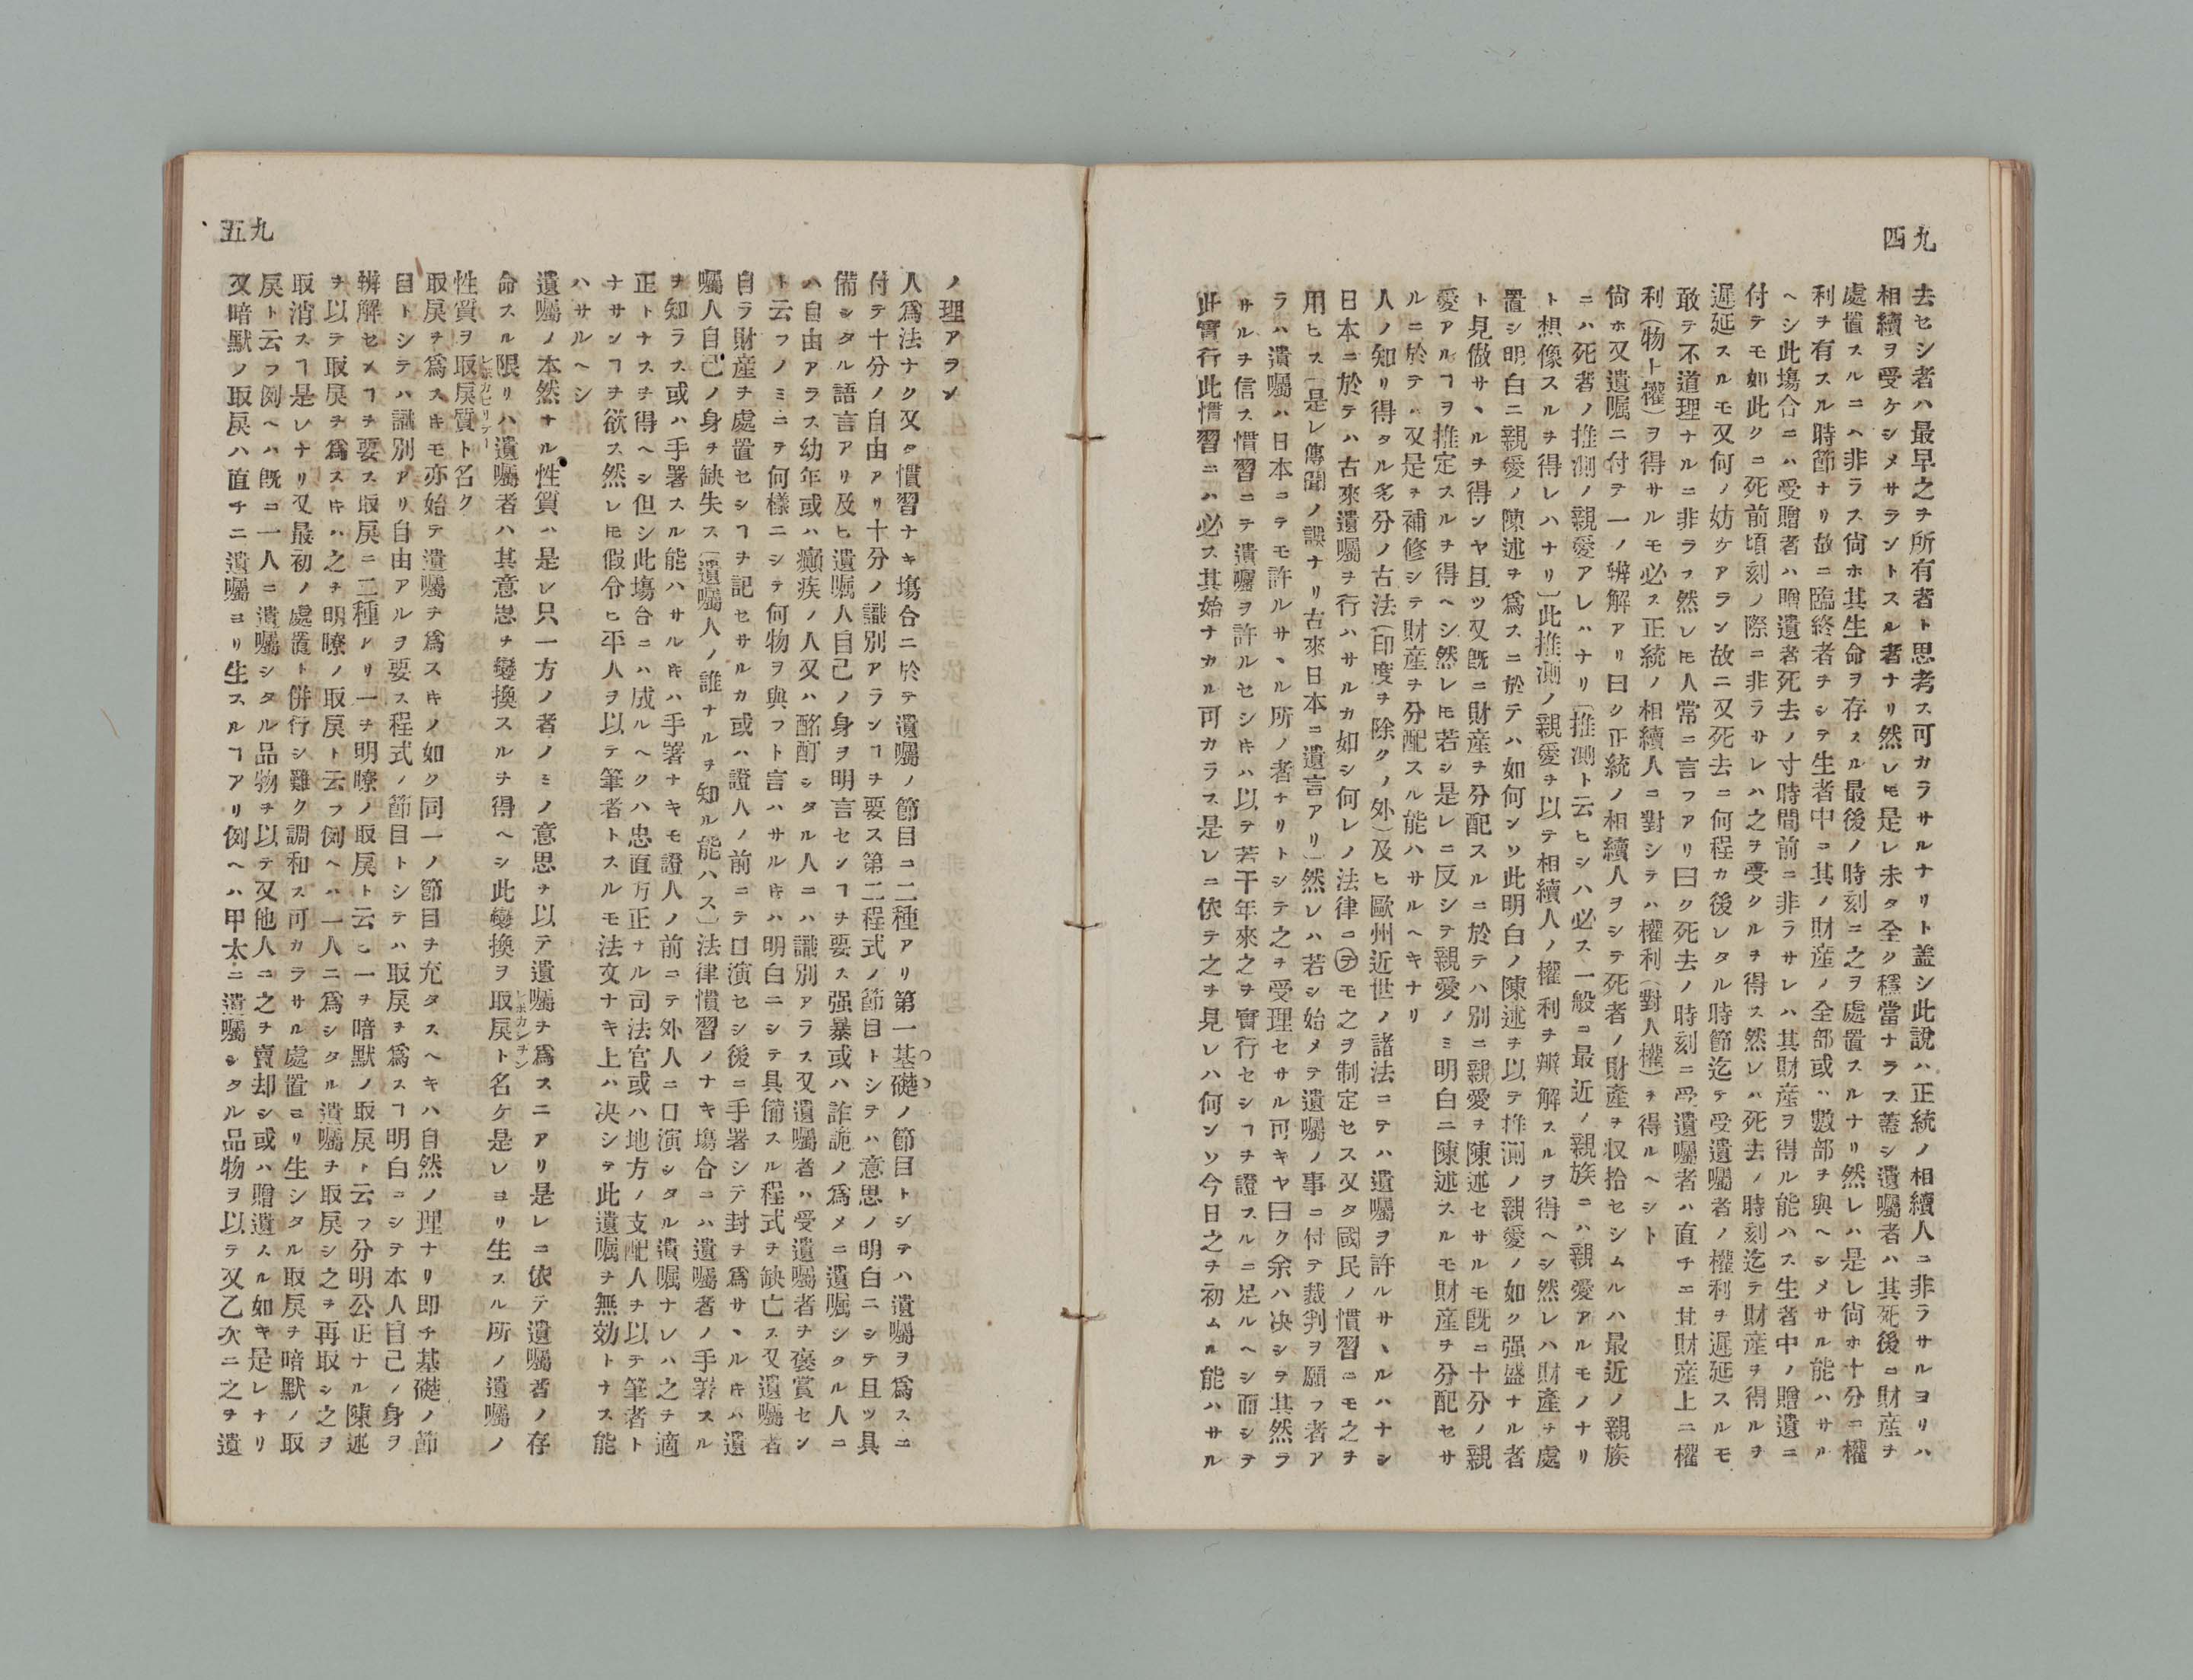 九四
去セシ者ハ最早之ヲ所有者ト思考ス可カラサルナリト蓋シ此說ハ正統ノ相續人ニ非ラサルヨリハ
相續ヲ受ケシメサラントスル者ナリ然レ𪜈是レ未タ全ク穩當ナラス蓋シ遺囑者ハ其死後ニ財產ヲ
處置スルニハ非ラス尙ホ其生命ヲ存スル最後ノ時刻ニ之ヲ處置スルナリ然レハ是レ尙ホ十分ニ權
利ヲ有スル時節ナリ故ニ臨終者ヲシテ生者中ニ其ノ財產ノ全部或ハ數部ヲ與ヘシメサル能ハサル
ヘシ此塲合ニハ受贈者ハ贈遺者死去ノ寸時間前ニ非ラサレハ其財產ヲ得ル能ハス生者中ノ贈遺ニ
付テモ如此クニ死前頃刻ノ際ニ非ラサレハ之ヲ受クルヲ得ス然レハ死去ノ時刻迄テ財產ヲ得ルヲ
遲延スルモ又何ノ妨ケアラン故ニ又死去ニ何程カ後レタル時節迄テ受遺囑者ノ權利ヲ遲延スルモ
敢テ不道理ナルニ非ラス然レ𪜈人常ニ言フアリ曰ク死去ノ時刻ニ受遺囑者ハ直チニ其財產上ニ權
利(物ト權)ヲ得サルモ必ス正統ノ相續人ニ對シテハ權利(對人權)ヲ得ルヘシト
尙ホ又遺囑ニ付テ一ノ辨解アリ曰ク正統ノ相續人ヲシテ死者ノ財產ヲ収拾セシムルハ最近ノ親族
ニハ死者ノ推測ノ親愛アレハナリ〔推測ト云ヒシハ必ス一般ニ最近ノ親族ニハ親愛アルモノナリ
ト想像スルヲ得レハナリ〕此推測ノ親愛ヲ以テ相續人ノ權利ヲ辨解スルヲ得ヘシ然レハ財產ヲ處
置シ明白ニ親愛ノ陳述ヲ爲スニ於テハ如何ンソ此明白ノ陳述ヲ以テ推測ノ親愛ノ如ク强盛ナル者
ト見做サヽルヲ得ンヤ且ツ又既ニ財產ヲ分配スルニ於テハ別ニ親愛ヲ陳述セサルモ既ニ十分ノ親
愛アルヿヲ推定スルヲ得ヘシ然レ𪜈若シ是レニ反シテ親愛ノミ明白ニ陳述スルモ財產ヲ分配セサ
ルニ於テハ又是ヲ補修シテ財產ヲ分配スル能ハサルヘキナリ
人ノ知リ得タル多分ノ古法(印度ヲ除クノ外)及ヒ歐州近世ノ諸法ニテハ遺囑ヲ許ルサヽルハナシ
日本ニ於テハ古來遺囑ヲ行ハサルカ如シ何レノ法律ニテモ之ヲ制定セス又タ國民ノ慣習ニモ之ヲ
用ヒス〔是レ傳聞ノ誤ナリ古來日本ニ遺言アリ〕然レハ若シ始メテ遺囑ノ事ニ付テ裁判ヲ願フ者ア
ラハ遺囑ハ日本ニテモ許ルサヽル所ノ者ナリトシテ之ヲ受理セサル可キヤ曰ク余ハ决シテ其然ラ
サルヲ信ス慣習ニテ遺囑ヲ許ルセシ𪜈ハ以テ若干年來之ヲ實行セシヿヲ證スルニ足ルヘシ而シテ
此實行此慣習ニハ必ス其始ナカル可カラス是レニ依テ之ヲ見レハ何ンソ今日之ヲ初ムル能ハサル
九五
ノ理アラン
人爲法ナク又タ慣習ナキ塲合ニ於テ遺囑ノ節目ニ二種アリ第一基礎ノ節目トシテハ遺囑ヲ爲スニ
付テ十分ノ自由アリ十分ノ識別アランヿヲ要ス第二程式ノ節目トシテハ意思ノ明白ニシテ且ツ具
備シタル語言アリ及ヒ遺囑人自己ノ身ヲ明言センヿヲ要ス强暴或ハ詐詭ノ爲メニ遺囑シタル人ニ
ハ自由アラス幼年或ハ癲疾ノ人又ハ酩酊シタル人ニハ識別アラス又遺囑者ハ受遺囑者ヲ褒賞セン
ト云フノミニテ何樣ニシテ何物ヲ與フト言ハサル𪜈ハ明白ニシテ具備スル程式ヲ缺亡ス又遺囑者
自ラ財產ヲ處置セシヿヲ記セサルカ或ハ證人ノ前ニテ口演セシ後ニ手署シテ封ヲ爲サヽル𪜈ハ遺
囑人自己ノ身ヲ缺失ス〔遺囑人ノ誰ナルヲ知ル能ハス〕法律慣習ノナキ塲合ニハ遺囑者ノ手署スル
ヲ知ラス或ハ手署スル能ハサル𪜈ハ手署ナキモ證人ノ前ニテ外人ニ口演シタル遺囑ナレハ之ヲ適
正トナスヲ得ヘシ但シ此塲合ニハ成ルヘクハ忠直方正ナル司法官或ハ地方ノ支配人ヲ以テ筆者ト
ナサンヿヲ欲ス然レ𪜈假令ヒ平人ヲ以テ筆者トスルモ法文ナキ上ハ决シテ此遺囑ヲ無効トナス能
ハサルヘシ
遺囑ノ本然ナル性質ハ是レ只一方ノ者ノミノ意思ヲ以テ遺囑ヲ爲スニアリ是レニ依テ遺囑者ノ存
命スル限リハ遺囑者ハ其意思ヲ變換スルヲ得ヘシ此變換ヲ取戾ト名ケ是レヨリ生スル所ノ遺囑ノ
性質ヲ取戾質ト名ク
取戾ヲ爲ス𪜈モ亦始テ遺囑ヲ爲ス𪜈ノ如ク同一ノ節目ヲ充タスヘキハ自然ノ理ナリ即チ基礎ノ節
目トシテハ識別アリ自由アルヲ要ス程式ノ節目トシテハ取戾ヲ爲スヿ明白ニシテ本人自己ノ身ヲ
辨解セメヿヲ要ス取戾ニ二種アリ一ヲ明瞭ノ取戾ト云ヒ一ヲ暗默ノ取戾ト云フ分明公正ナル陳述
ヲ以テ取戾ヲ爲ス𪜈ハ之ヲ明瞭ノ取戾ト云フ例ヘハ一人ニ爲シタル遺囑ヲ取戾シ之ヲ再取シ之ヲ
取消スヿ是レナリ又最初ノ處置ト併行シ難ク調和ス可カラサル處置ヨリ生シタル取戾ヲ暗默ノ取
戾ト云フ例ヘハ既ニ一人ニ遺囑シタル品物ヲ以テ又他人ニ之ヲ賣却シ或ハ贈遺スル如キ是レナリ
又暗默ノ取戾ハ直チニ遺囑ヨリ生スルヿアリ例ヘハ甲太ニ遺囑シタル品物ヲ以テ又乙次ニ之ヲ遺